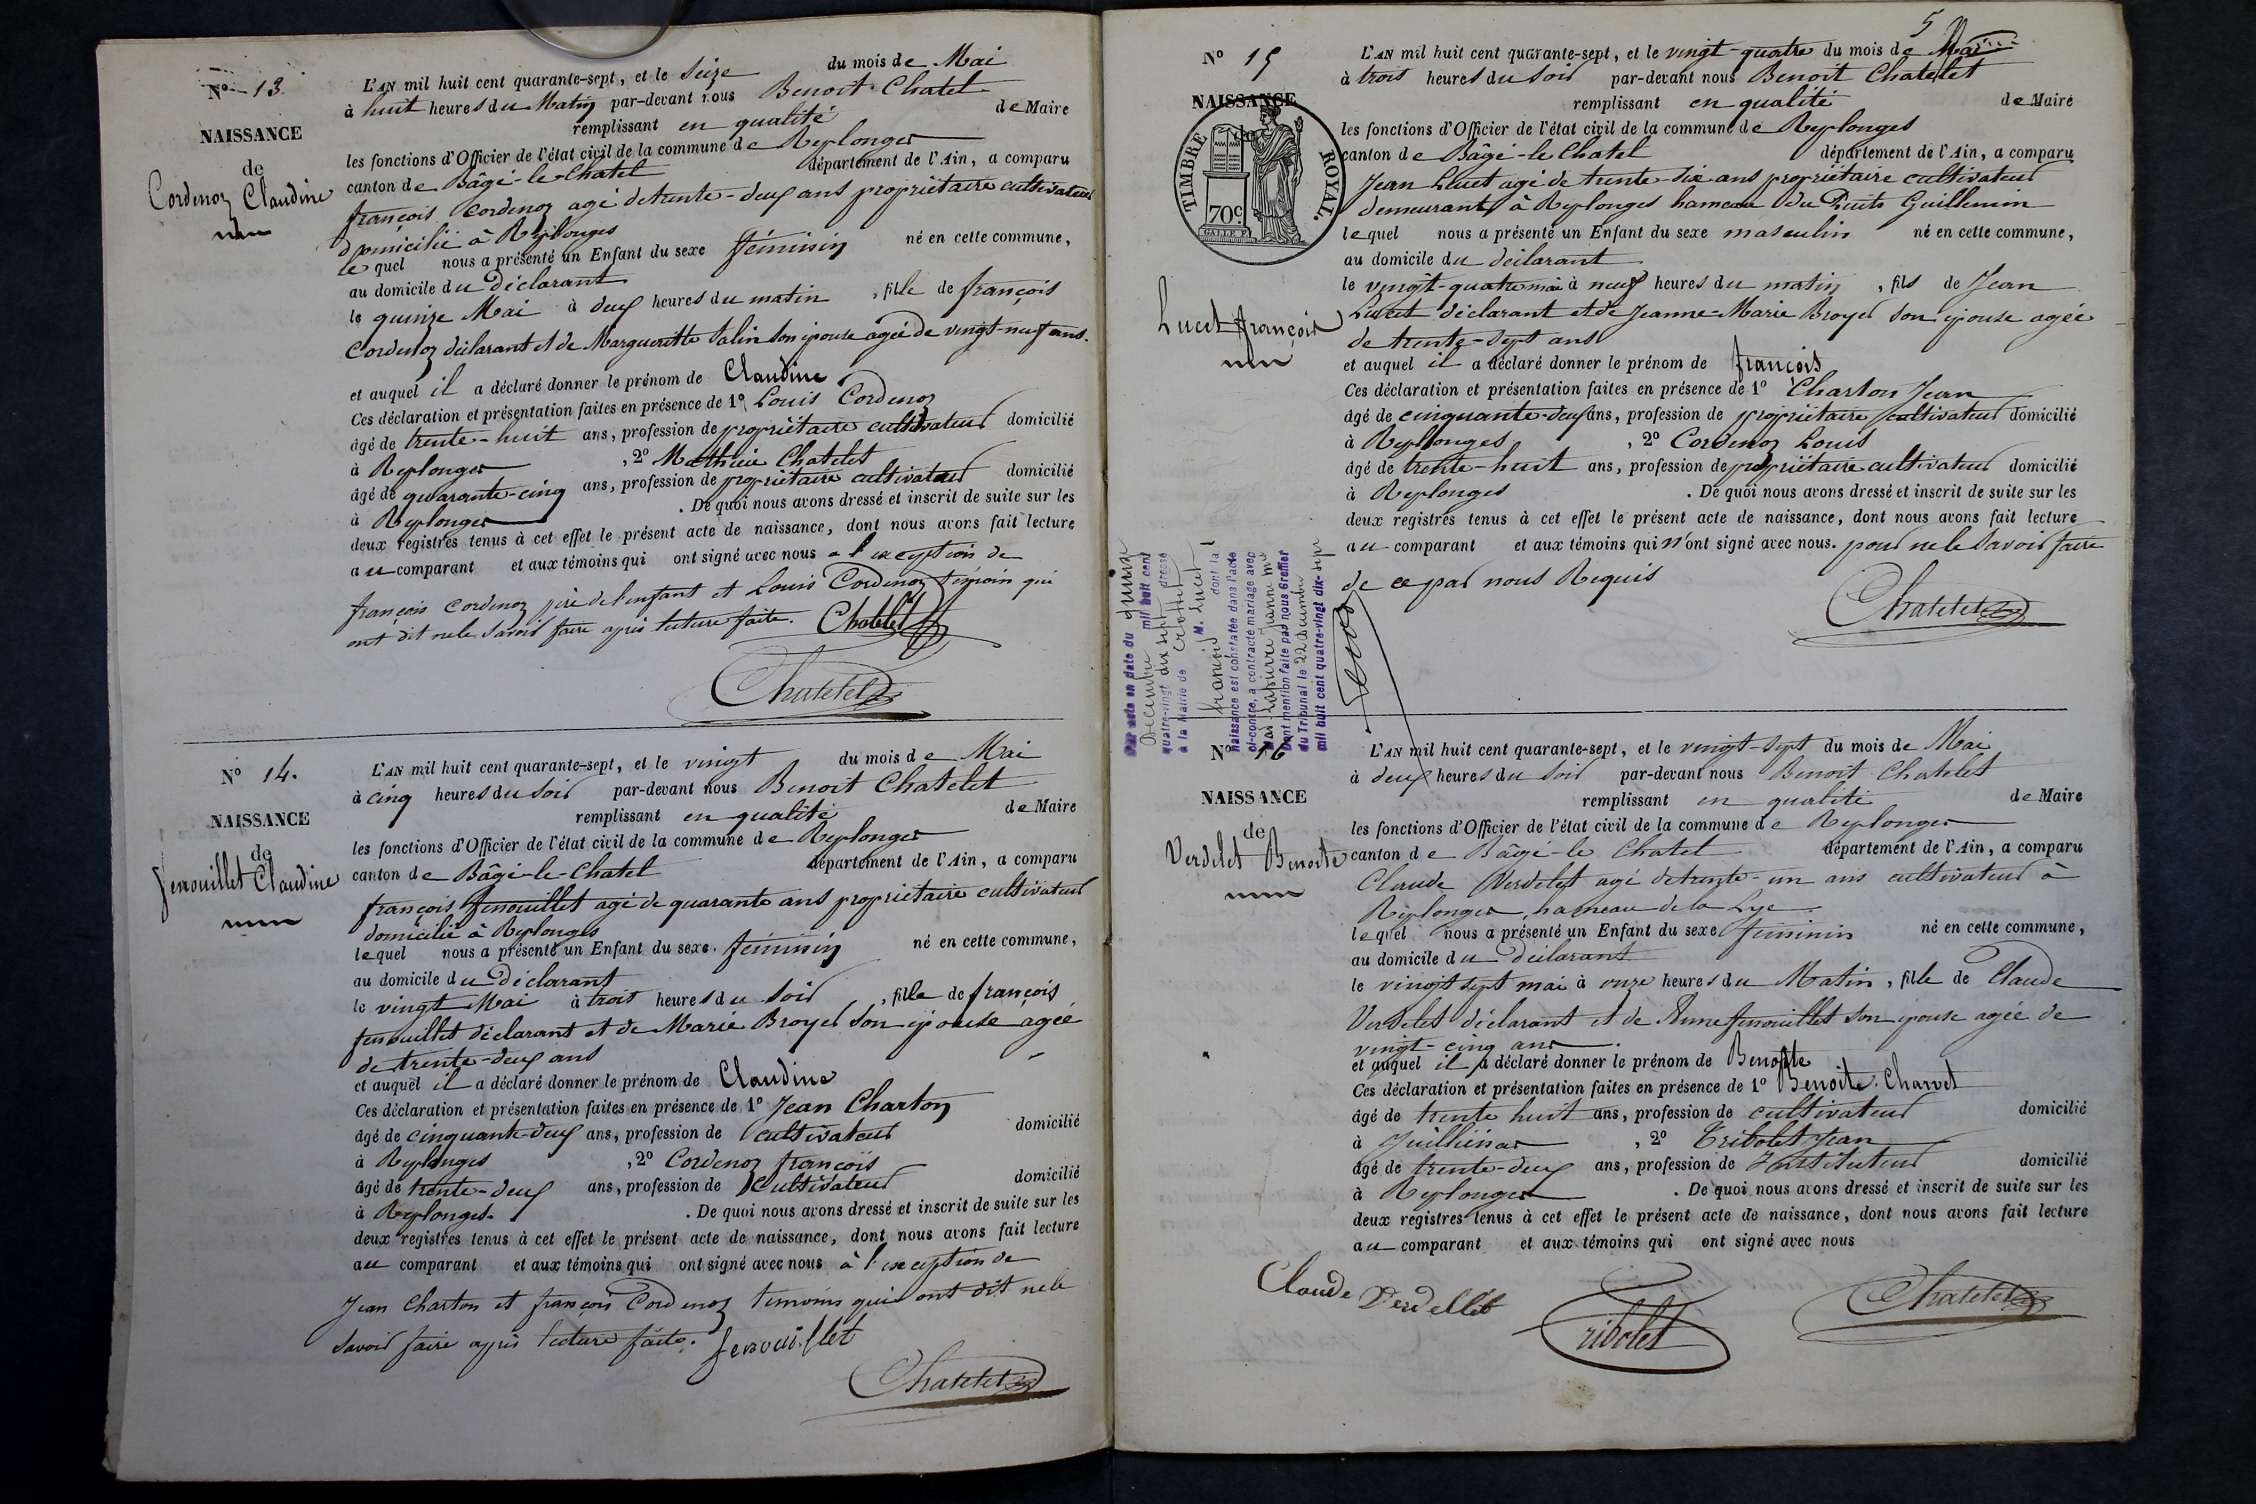 Nº 13.
NAISSANCE
de
Cordenoz Claudine
L'AN mil huit cent quarante-sept, et le seize du mois de Mai
à huit heures du Matin par-devant nous Benoit Chatelet
remplissant en qualité de Maire
les fonctions d'Officier de l'état civil de la commune de Replonges
canton de Bâgé-le-Chatel département de l'Ain, a comparu
françois Cordenoz agé de trente-deux ans propriétaire cultivateur
domicilié à Replonges
lequel nous a présenté un Enfant du sexe féminin né en cette commune,
au domicile du Déclarant
le quinze Mai à deux heures du matin, fille de françois
Cordenoz déclarant et de Margueritte Salin son épouse agée de vingt-neuf ans.
et auquel il a déclaré donner le prénom de Claudine
Ces déclaration et présentation faites en présence de 1º Louis Cordenoz
âgé de trente-huit ans, profession de propriétaire cultivateur domicilié
à Replonges, 2º Mathieu Chatelet
âgé de quarante-cinq ans, profession de propriétaire cultivateur domicilié
à Replonges. De quoi nous avons dressé et inscrit de suite sur les
deux registres tenus à cet effet le présent acte de naissance, dont nous avons fait lecture
au comparant et aux témoins qui ont signé avec nous a l'exception de
françois Cordenoz père de l'enfant et Louis Cordenoz témoin qui
ont dit ne le savoir faire après lecture faite. Chatelet
Chatelet
Nº 14.
NAISSANCE
de
fenouillet Claudine
L'AN mil huit cent quarante-sept, et le vingt du mois de Mai
à cinq heures du soir par-devant nous Benoit Chatelet
remplissant en qualité de Maire
les fonctions d'Officier de l'état civil de la commune de Replonges
canton de Bâgé-le-Chatel département de l'Ain, a comparu
françois fenouillet agé de quarante ans propriétaire cultivateur
domicilié à Replonges
lequel nous a présenté un Enfant du sexe féminin né en cette commune,
au domicile du Déclarant
le vingt Mai à trois heures du soir, fille de françois
fenouillet déclarant et de Marie Broyer son épouse agée
de trente-deux ans
et auquel il a déclaré donner le prénom de Claudine
Ces déclaration et présentation faites en présence de 1º Jean Charton
âgé de cinquante-deux ans, profession de cultivateur domicilié
à Replonges, 2º Cordenoz françois
âgé de trente-deux ans, profession de cultivateur domicilié
à Replonges. De quoi nous avons dressé et inscrit de suite sur les
deux registres tenus à cet effet le présent acte de naissance, dont nous avons fait lecture
au comparant et aux témoins qui ont signé avec nous à l'exception de
Jean Charton et françois Cordenoz temoins qui ont dit ne le
savoir faire après lecture faite. fenouillet
Chatelet
5
Nº 15
NAISSANCE
de
TIMBRE ROYAL.
70c.
GALLE F.
Lucet françois
L'AN mil huit cent quarante-sept, et le vingt-quatre du mois de Mai
à trois heures du soir par-devant nous Benoit Chatelet
remplissant en qualité de Maire
les fonctions d'Officier de l'état civil de la commune de Replonges
canton de Bâgé-le-Chatel département de l'Ain, a comparu
Jean Lucet agé de trente six ans propriétaire cultivateur
demeurant à Replonges hameau du Puits Guillemin
lequel nous a présenté un Enfant du sexe masculin né en cette commune,
au domicile du déclarant
le vingt-quatre mai à neuf heures du matin, fils de Jean
Lucet déclarant et de Jeanne-Marie Broyer son épouse agée
de trente-sept ans
et auquel il a déclaré donner le prénom de françois
Ces déclaration et présentation faites en présence de 1º Charton Jean
âgé de cinquante-deux ans, profession de propriétaire cultivateur domicilié
à Replonges, 2º Cordenoz Louis
âgé de trente-huit ans, profession de propriétaire cultivateur domicilié
à Replonges. De quoi nous avons dressé et inscrit de suite sur les
deux registres tenus à cet effet le présent acte de naissance, dont nous avons fait lecture
au comparant et aux témoins qui n'ont signé avec nous. pour ne le savoir faire
de ce par nous Requis
Chatelet
Par acte en date du quinze
Décembre mil huit cent
quatre-vingt dix sept dressé
à la Mairie de Crottet
M. Lucet
françois dont la
naissance est constatée dans l'acte
ci-contre, a contracté mariage avec
Lapierre Jeanne Mie
Dont mention faite par nous Greffier
du Tribunal le 22 Décembre
mil huit cent quatre-vingt dix-sept
Nº 16
NAISSANCE
de
Verdelet Benoite
L'AN mil huit cent quarante-sept, et le vingt-sept du mois de Mai
à deux heures du soir par-devant nous Benoit Chatelet
remplissant en qualité de Maire
les fonctions d'Officier de l'état civil de la commune de Replonges
canton de Bâgé-le Chatel département de l'Ain, a comparu
Claude Verdelet agé de trente-un ans cultivateur à
Replonges, hameau de la Lye
lequel nous a présenté un Enfant du sexe feminin né en cette commune,
au domicile du déclarant
le vingt sept mai à onze heures du Matin, fille de Claude
Verdelet déclarant et de Anne fenouillet son épouse agée de
vingt-cinq ans
et auquel il a déclaré donner le prénom de Benoite
Ces déclaration et présentation faites en présence de 1º Benoite Charvet
âgé de trente huit ans, profession de cultivateur domicilié
à, 2º Tribolet Jean
âgé de trente-deux ans, profession de Instituteur domicilié
à Replonges. De quoi nous avons dressé et inscrit de suite sur les
deux registres tenus à cet effet le présent acte de naissance, dont nous avons fait lecture
au comparant et aux témoins qui ont signé avec nous
Claude Verdellet
Tribolet
Chatelet